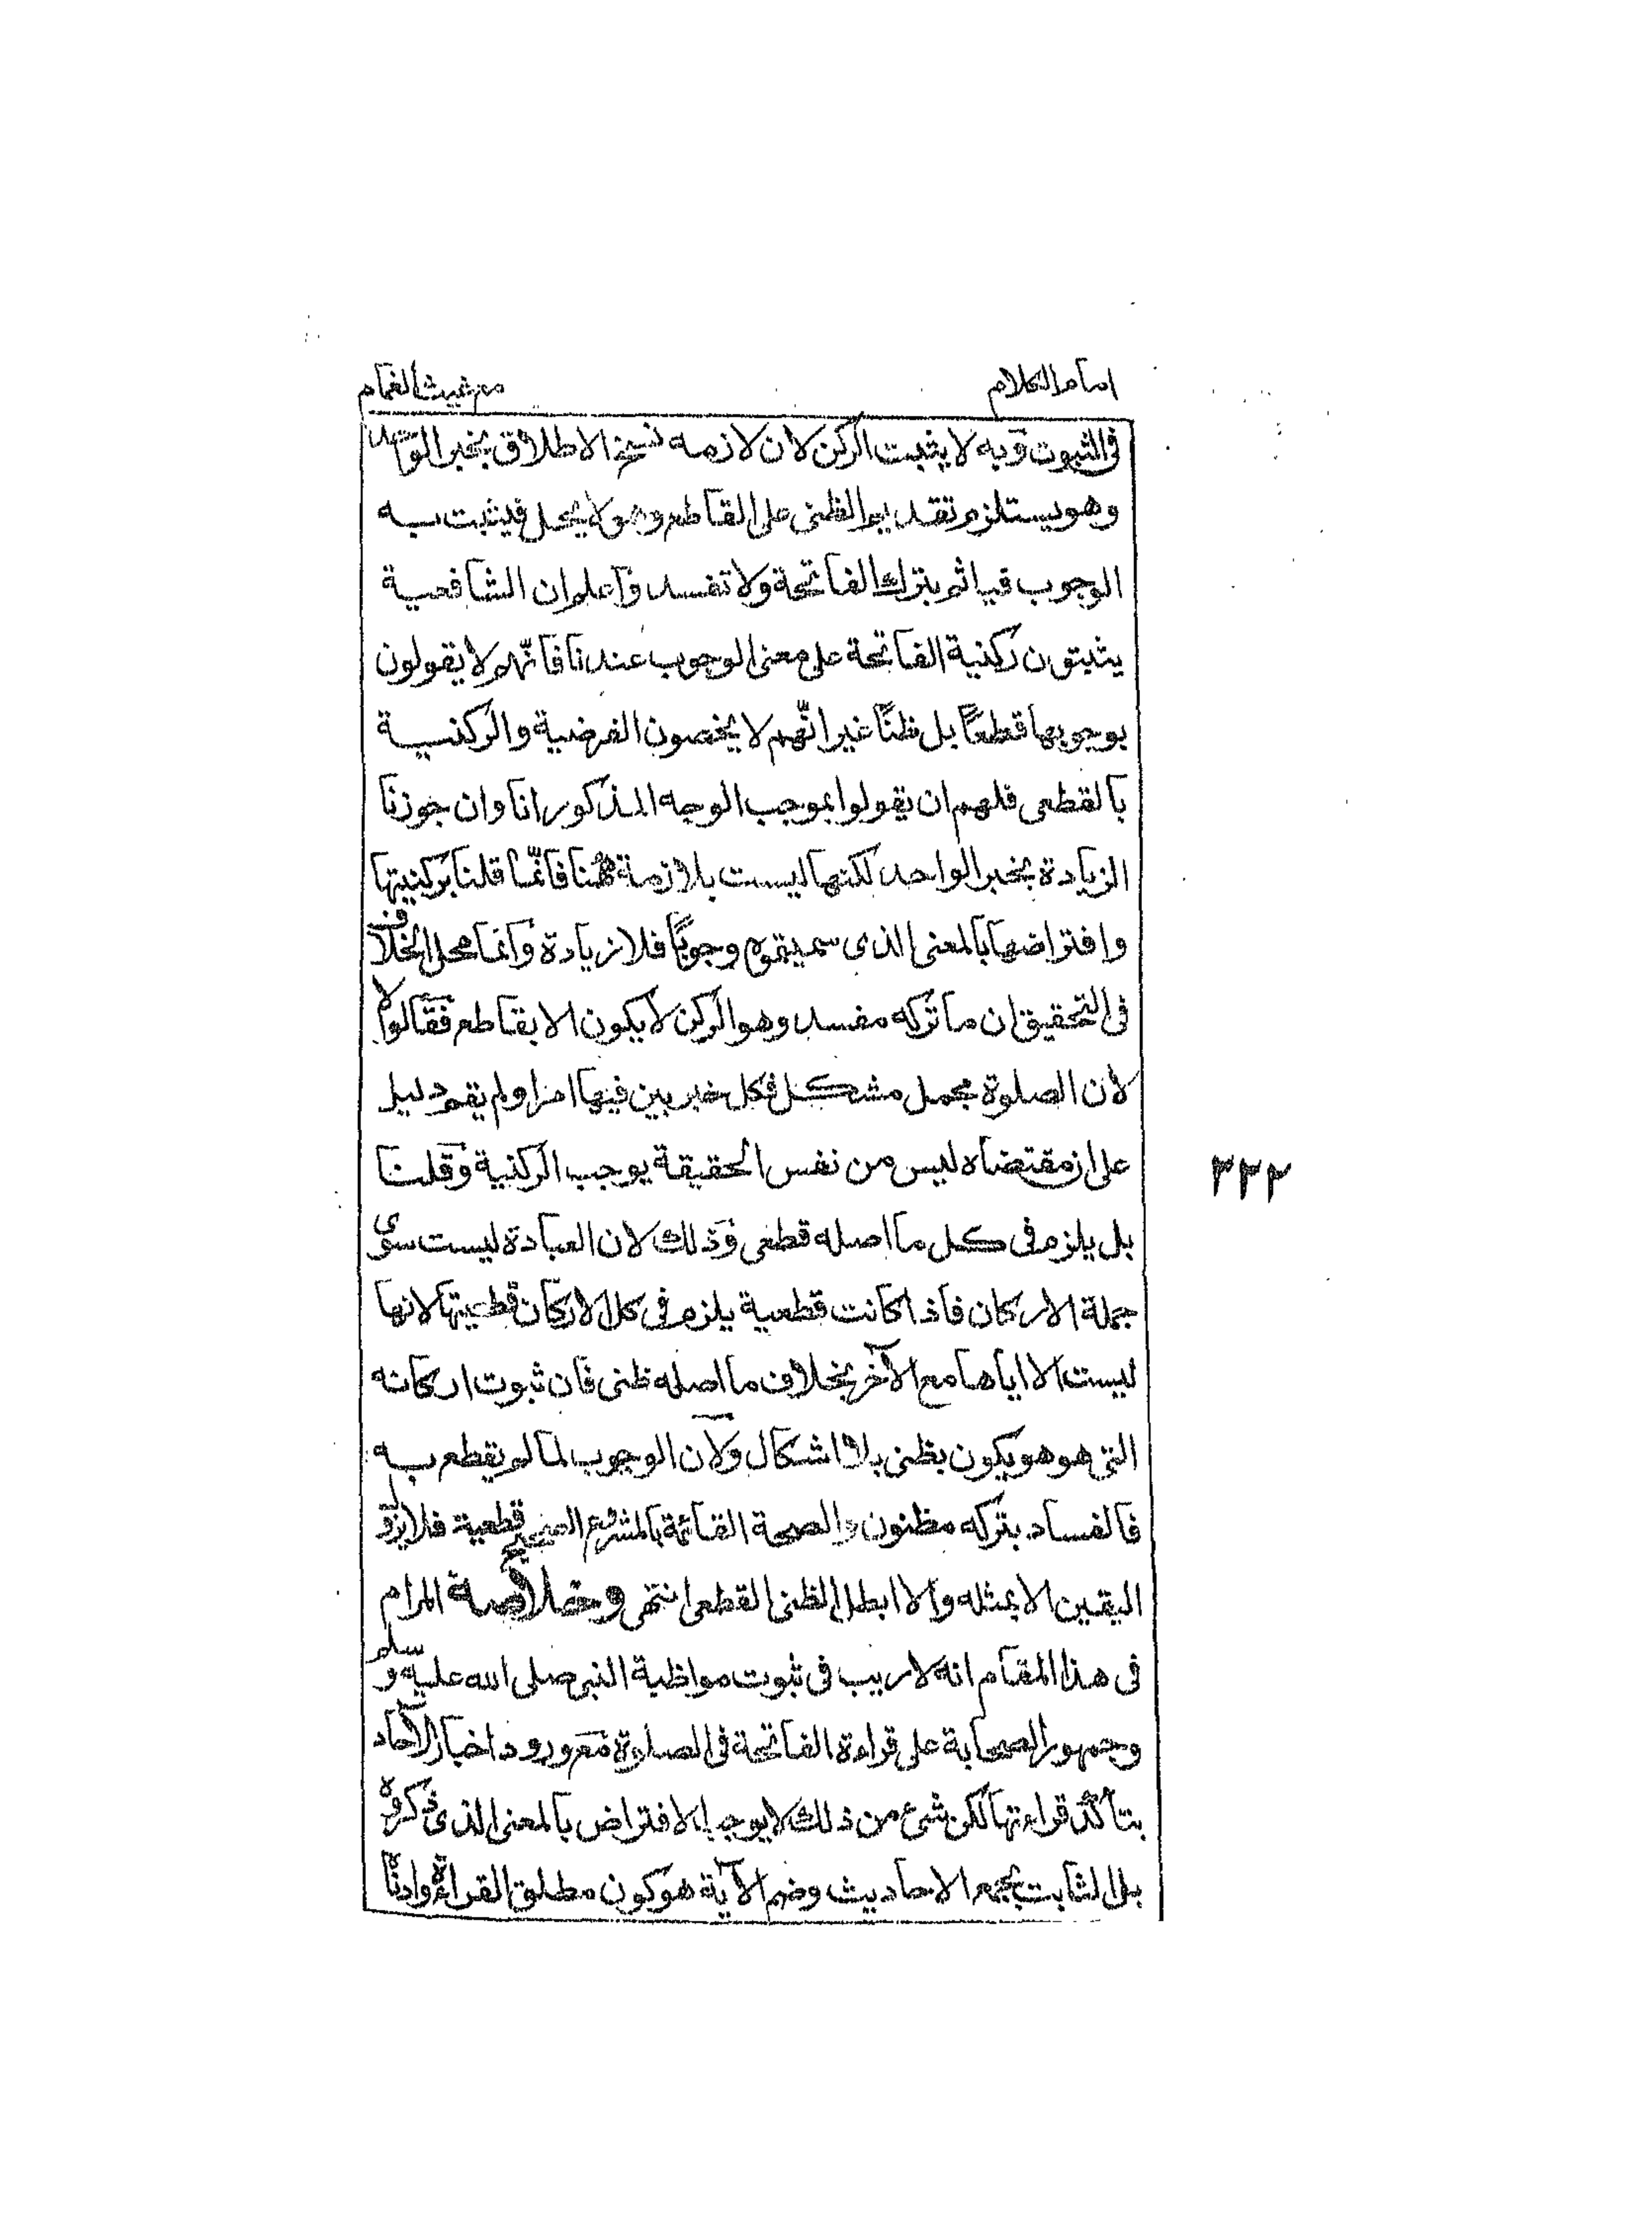 امام الكلام
مع غيث الغمام
فى الثبوت وبه لا يثبت الركن لان لازمه نسخ الاطلاق بخبر الواحد
وهو يستلزم تقديم الظنى على القاطع وهو لا يحل فيثبت به
الوجوب فياثم بترك الفاتحة ولا تفسد واعلم ان الشافعية
يثبتون ركنية الفاتحة على معنى الوجوب عندنا فانّهم لا يقولون
بوجوبها قطعًا بل ظنًّا غير انّهم لا يخصون الفرضية والركنية
بالقطعى فلهم ان يقولوا بموجب الوجه المذكور انا وان جوزنا
الزيادة بخبر الواحد لكنها ليست بلازمة ههنا فانّما قلنا بركنيتها
وافتراضها بالمعنى الذى سميتموه وجوبًا فلا زيادة وانما محل الخلاف
فى التحقيق ان ما تركه مفسد وهو الركن لا يكون الا بقاطع فقالوا لا
لان الصلوة مجمل مشكل فكل خبر بين فيها امرا ولم يقم دليل
على ان مقتضاه ليس من نفس الحقيقة يوجب الركنية وقلنا
بل يلزم فى كل ما اصله قطعى وذلك لان العبادة ليست سوى
جملة الاركان فاذا كانت قطعية يلزم فى كل الاركان قطعيتها لانها
ليست الا اياها مع الآخر بخلاف ما اصله ظنى فان ثبوت اركانه
التى هو هو يكون بظنى بلا اشكال ولان الوجوب لما لم يقطع به
فالفساد بتركه مظنون والصحة القائمة بالشرع الصحيح قطعية فلا يزول
اليقين الا بمثله والا ابطل الظنى القطعى انتهى وخلاصة المرام
فى هذا المقام انه لا ريب فى ثبوت مواظبة النبى صلى الله عليه وسلم
وجمهور الصحابة على قراءة الفاتحة فى الصلوة مع ورود اخبار الآحاد
بتأكد قراءتها لكن شئ من ذلك لا يوجب الافتراض بالمعنى الذى ذكروه
بل الثابت بجمع الاحاديث وضم الآية هو كون مطلق القراءة وادناه
٣٢٢